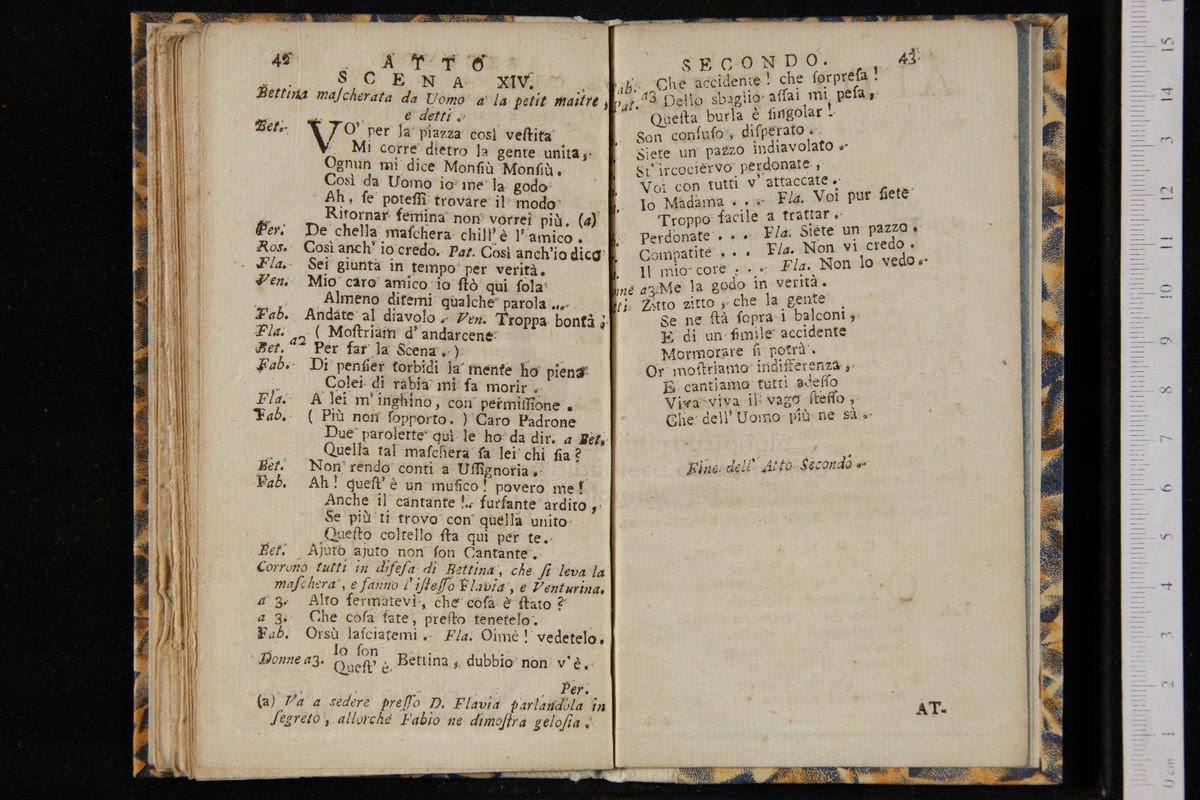 42 ATTO
SCENA XIV.
Bettina maſcherata da Uomo a la petit maitre,
e detti.
Bet. VO' per la piazza così veſtita
Mi corre dietro la gente unita,
Ognun mi dice Monſiù Monſiù.
Così da Uomo io me la godo
Ah, ſe poteſſi trovare il modo
Ritornar femina non vorrei più. (a)
Per. De chella maſchera chill' è l' amico.
Ros. Così anch' io credo. Pat. Così anch'io dico
Fla. Sei giunta in tempo per verità.
Ven. Mio caro amico io ſtò qui ſola
Almeno ditemi qualche parola ...
Fab. Andate al diavolo. Ven. Troppa bontà;
Fla. ( Moſtriam d' andarcene
Bet. a2 Per far la Scena. )
Fab. Di penſier torbidi la mente ho piena
Colei di rabia mi fa morir.
Fla. A lei m' inghino, con permiſſione.
Fab. ( Più non ſopporto. ) Caro Padrone
Due parolette quì le ho da dir. a Bet.
Quella tal maſchera ſa lei chi ſia?
Bet. Non rendo conti a Uſſignoria.
Fab. Ah! queſt' è un muſico! povero me!
Anche il cantante!.. furfante ardito,
Se più ti trovo con quella unito
Queſto coltello ſta qui per te.
Bet. Ajuto ajuto non ſon Cantante.
Corrono tutti in difeſa di Bettina, che ſi leva la
maſchera, e fanno l' iſteſſo Flavia, e Venturina.
a 3. Alto fermatevi, che coſa è ſtato?
a 3. Che coſa fate, preſto tenetelo.
Fab. Orsù laſciatemi. Fla. Oimè! vedetelo.
Io ſon
Donne a3. Queſt' è Bettina, dubbio non v' è.
Per.
(a) Va a ſedere preſſo D. Flavia parlandola in
ſegreto, allorchè Fabio ne dimoſtra geloſia.
SECONDO. 43
Fab. Che accidente! che ſorpreſa!
Pat. a3 Dello sbaglio aſſai mi peſa,
Queſta burla è ſingolar!
Son confuſo, diſperato.
Siete un pazzo indiavolato.
St' ircociervo perdonate,
Voi con tutti v' attaccate.
Io Madama . . . Fla. Voi pur ſiete
Troppo facile a trattar.
Perdonate . . . Fla. Siete un pazzo.
Compatite . . . Fla. Non vi credo.
Il mio core . . . Fla. Non lo vedo.
a3 Me la godo in verità.
Zitto zitto, che la gente
Se ne ſtà ſopra i balconi,
E di un ſimile accidente
Mormorare ſi potrà.
Or moſtriamo indifferenza,
E cantiamo tutti adeſſo
Viva viva il vago ſteſſo,
Che dell' Uomo più ne sà.
Fine dell' Atto Secondo.
AT-